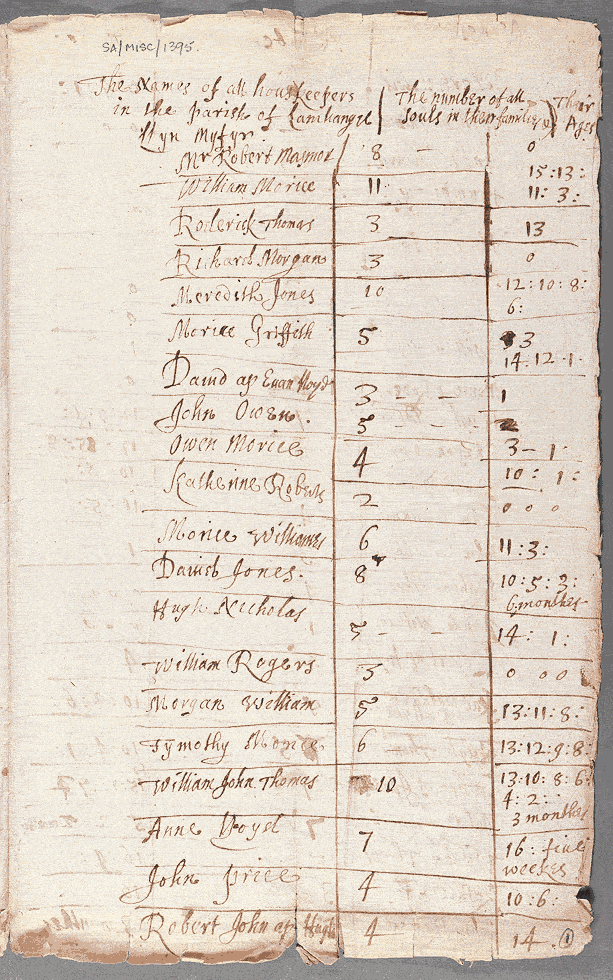 SA/MISC/1395.
The Names of all houskeepers
in the parish of Lanihangle
llyn Myfyr.
The number of all
Souls in their families
Their
Ages
Mr Robert Maynor 8 - 0
William Morice 11 15:13:
11: 3:
Roderick Thomas 3 13
Richard Morgan 3 0
Meredith Jones 10 12:10:8:
6:
Morice Griffith 5 3
14.12.1.
David ap Evan lloyd 3 - - 1
John Owen. 5 - - 2
Owen Morice 4 3 - 1:
10: 1:
Katherine Roberts 2 0 0 0
Morice Williames 6 11:3:
David Jones. 8 10:5:3:
6 monthes
Hugh Nicholas 5 - - 14: 1:
William Rogers 3 0 0 0
Morgan William 5 13:11:8:
Tymothy Morice 6 13:12:9:8:
William John Thomas 10 13:10:8:6:
4:2:
3 monthes
Anne lloyd 7 16: five
weekes
John Price 4 10:6:
Robert John ap Hugh 4 14.
1